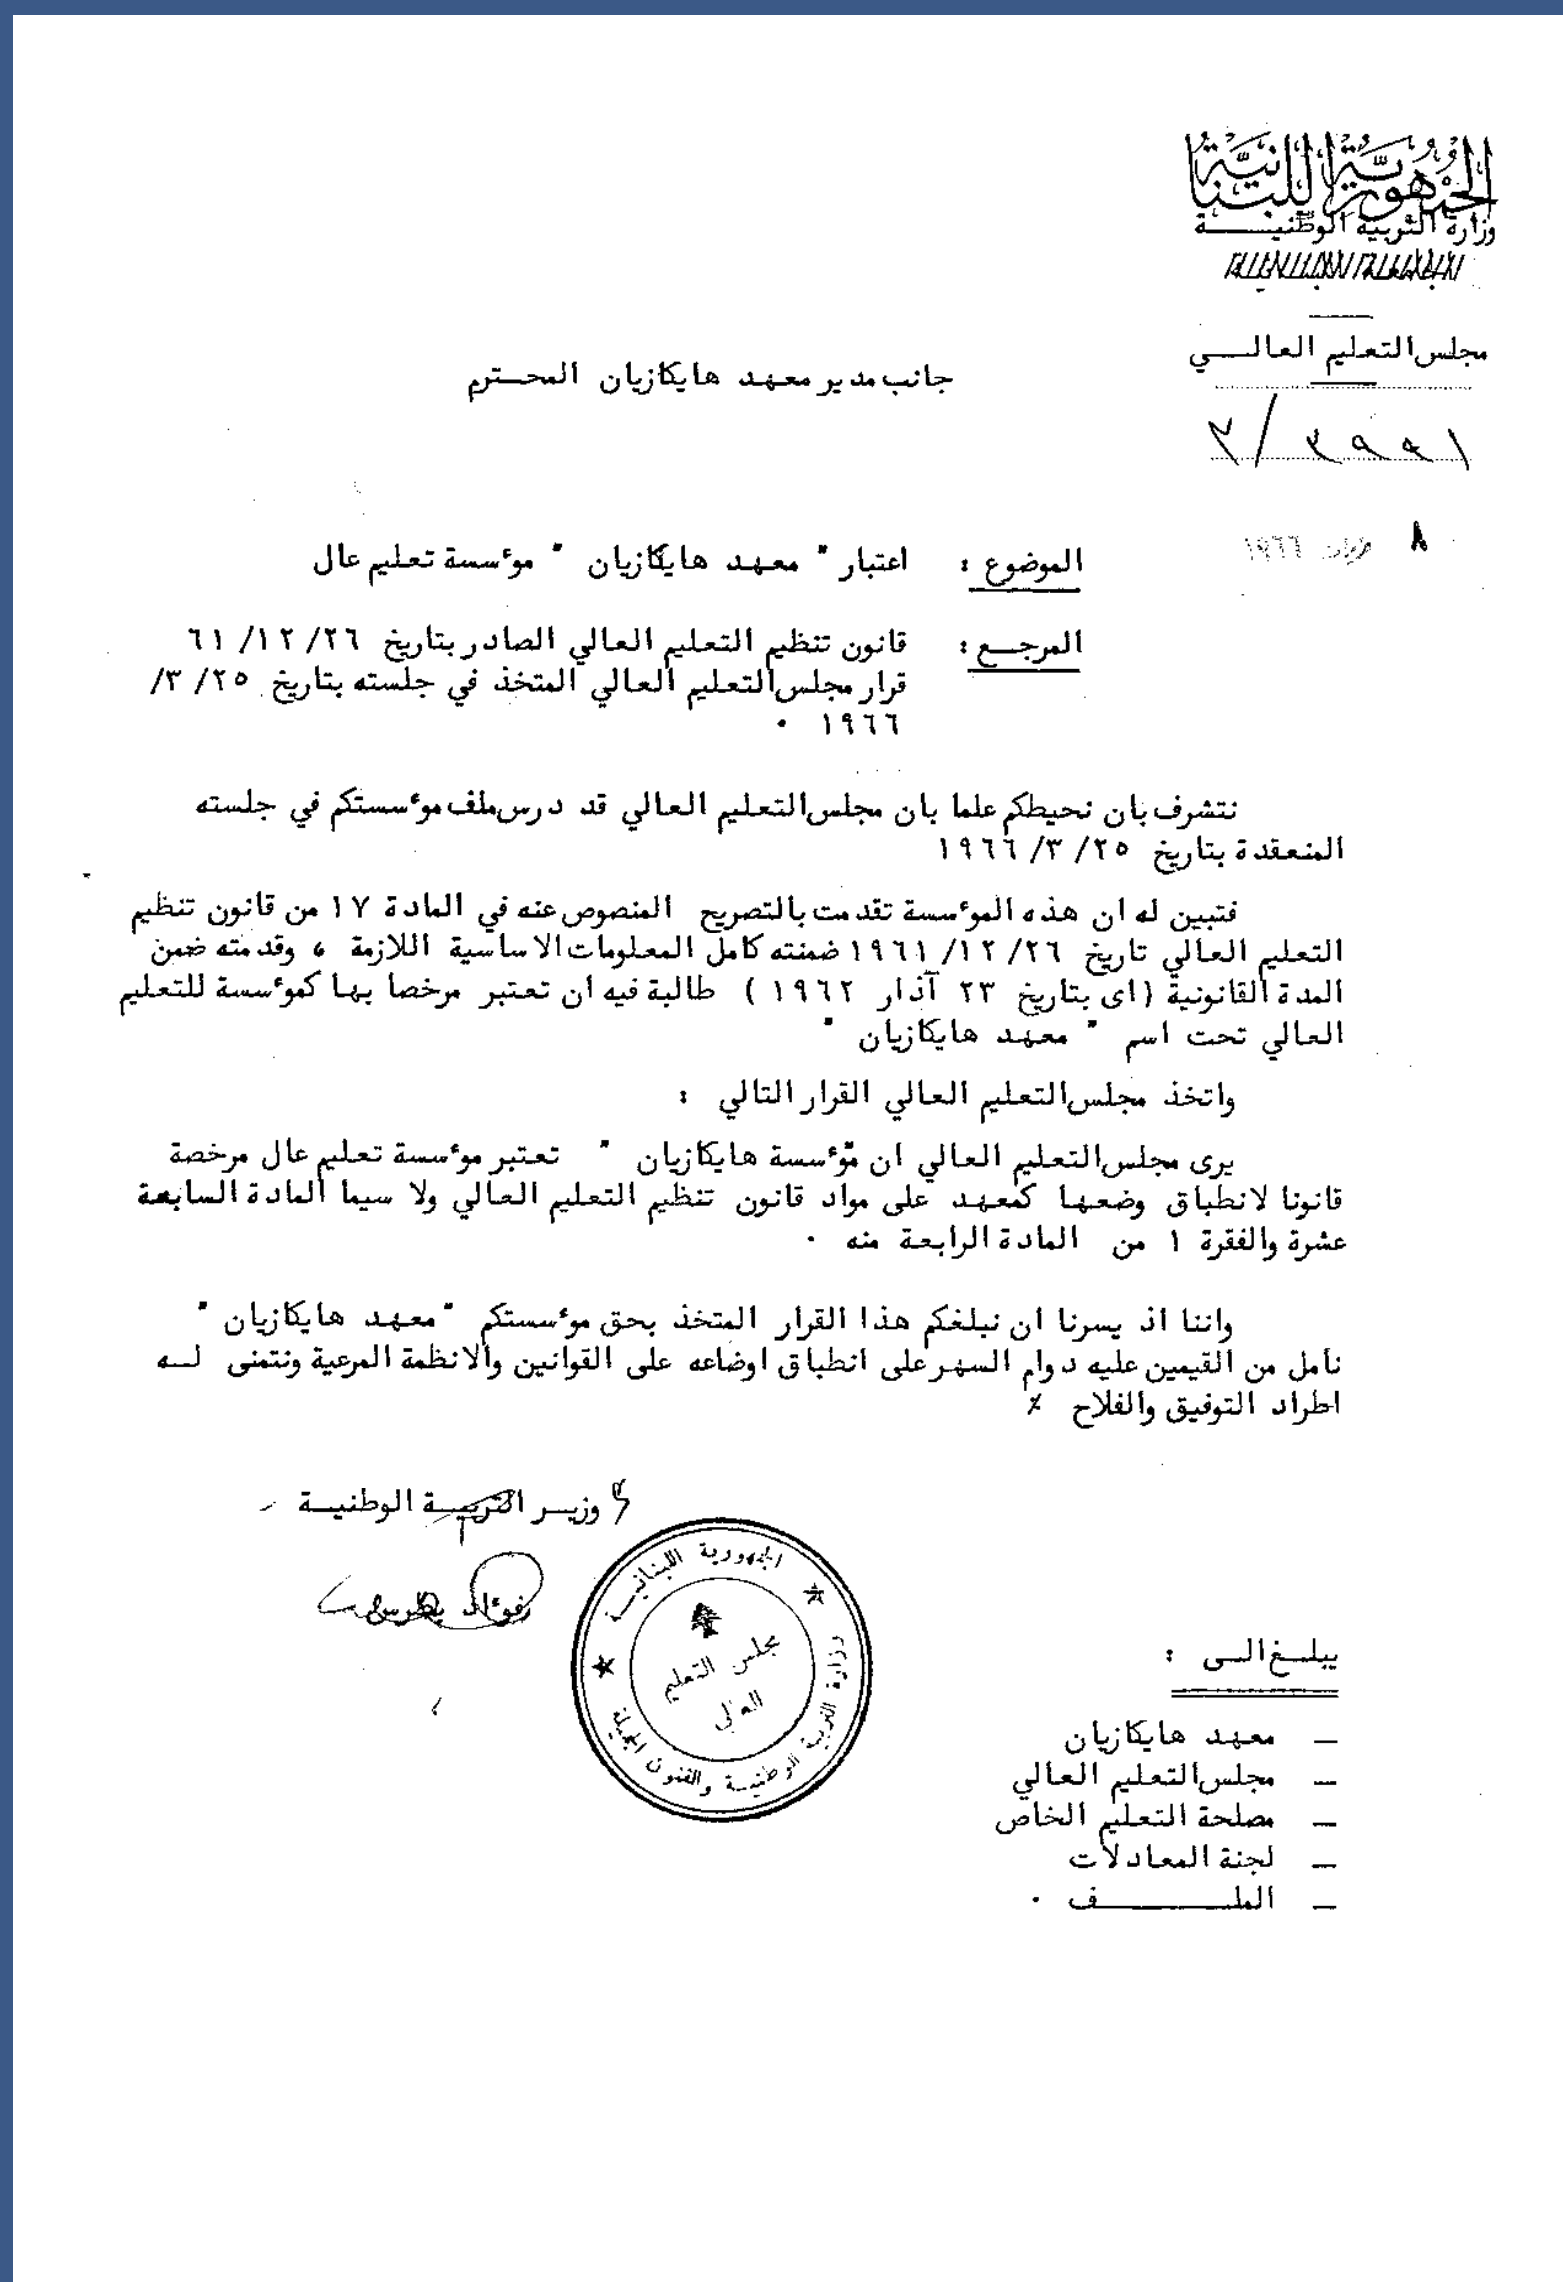 الجمهورية اللبنانية
وزارة التربية الوطنيــــة
مجلس التعليم العالــــي
١٩٩٣/٣
٨ حزيران ١٩٦٦
جانب مدير معهد هايكازيان المحترم
الموضوع : اعتبار " معهد هايكازيان " موءسسة تعليم عال
المرجـع : قانون تنظيم التعليم العالي الصادر بتاريخ ٢٦/ ١٢/ ٦١
قرار مجلس التعليم العالي المتخذ في جلسته بتاريخ ٢٥/ ٣/
١٩٦٦ ٠
نتشرف بان نحيطكم علما بان مجلس التعليم العالي قد درس ملف موءسستكم في جلسته
المنعقدة بتاريخ ٢٥/ ٣/ ١٩٦٦
فتبين له ان هذه الموءسسة تقدمت بالتصريح المنصوص عنه في المادة ١٧ من قانون تنظيم
التعليم العالي تاريخ ٢٦/ ١٢/ ١٩٦١ ضمنته كامل المعلومات الاساسية اللازمة ، وقدمته ضمن
المدة القانونية (اى بتاريخ ٢٣ آذار ١٩٦٢ ) طالبة فيه ان تعتبر مرخصا بها كموءسسة للتعليم
العالي تحت اسم " معهد هايكازيان "
واتخذ مجلس التعليم العالي القرار التالي :
يرى مجلس التعليم العالي ان "موءسسة هايكازيان " تعتبر موءسسة تعليم عال مرخصة
قانونا لانطباق وضعها كمعهد على مواد قانون تنظيم التعليم العالي ولا سيما المادة السابعة
عشرة والفقرة ١ من المادة الرابعة منه ٠
واننا اذ يسرنا ان نبلغكم هذا القرار المتخذ بحق موءسستكم "معهد هايكازيان "
نأمل من القيمين عليه دوام السهر على انطباق اوضاعه على القوانين والانظمة المرعية ونتمنى لــه
اطراد التوفيق والفلاح ٪
وزيــر التربيــة الوطنيــة
فوءاد بطرس
الجمهورية اللبنانيــة
وزارة التربية الوطنيــة والفنون الجميلة
مجلس التعليم
العالي
يبلــغ الــى :
– معهد هايكازيان
– مجلس التعليم العالي
– مصلحة التعليم الخاص
– لجنة المعادلات
– الملــــــــف ٠